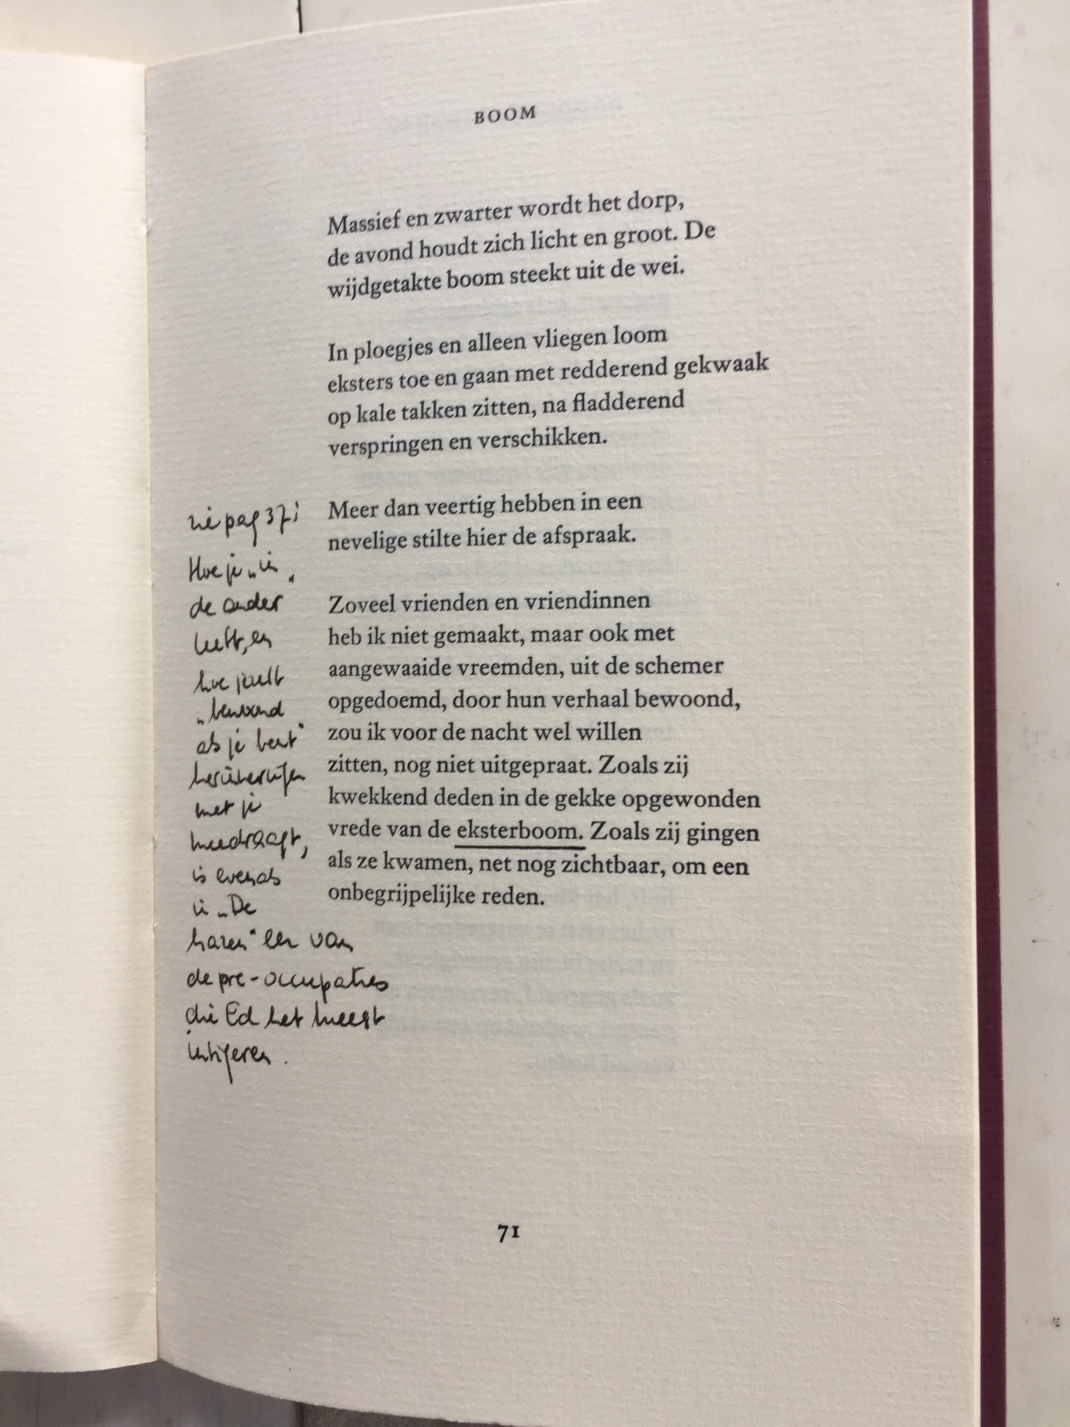 BOOM
Massief en zwarter wordt het dorp,
de avond houdt zich licht en groot. De
wijdgetakte boom steekt uit de wei.
In ploegjes en alleen vliegen loom
eksters toe en gaan met redderend gekwaak
op kale takken zitten, na fladderend
verspringen en verschikken.
Meer dan veertig hebben in een
nevelige stilte hier de afspraak.
Zoveel vrienden en vriendinnen
heb ik niet gemaakt, maar ook met
aangewaaide vreemden, uit de schemer
opgedoemd, door hun verhaal bewoond,
zou ik voor de nacht wel willen
zitten, nog niet uitgepraat. Zoals zij
kwekkend deden in de gekke opgewonden
vrede van de eksterboom. Zoals zij gingen
als ze kwamen, net nog zichtbaar, om een
onbegrijpelijke reden.
zie pag 37;
Hoe je „in
de ander
leeft, en
hoe jezelf
„bewoond
als je bent"
herinneringen
met je
meedraagt,
is evenals
in „De
haren" een van
de pre-occupaties
die Ed het meest
71